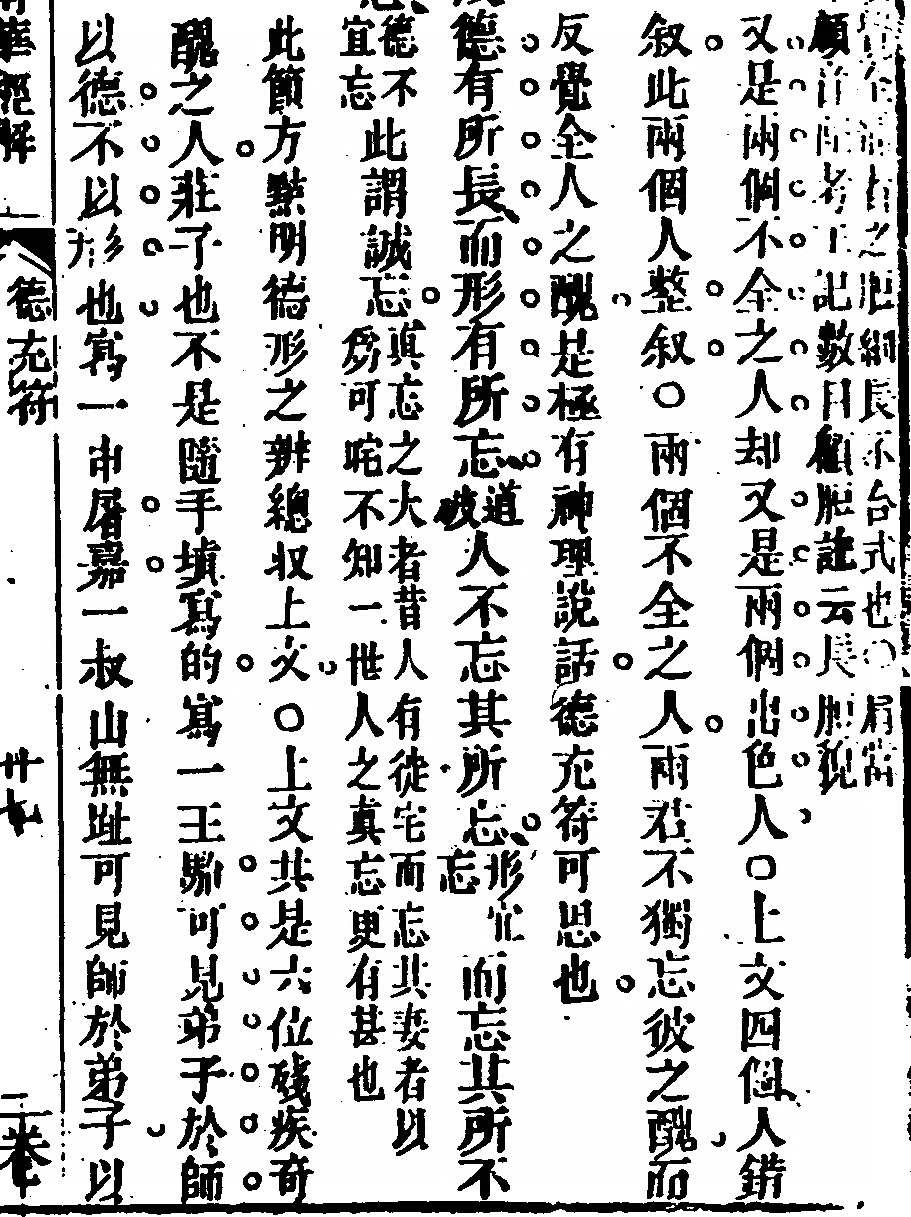 之肥細長不合式也〇肩當
顧音
考工記數目顧脰註云長脰貌
又是兩個不全之人却又是兩個出色人〇上文四個人錯
叙此兩個人整叙〇兩個不全之人兩君不獨忘彼之醜而
反覺全人之醜是極有神理說話德充符可思也
德有所長而形有所忘
道
彼
人不忘其所忘
形宜
忘
而忘其所不
德不
宜忘
此謂誠忘
真忘之大者昔人有徙宅而忘其妻者以
為可咤不知一世人之真忘更有甚也
此節方點明德形之辨總収上文〇上文共是六位殘疾奇
醜之人莊子也不是隨手填寫的寫一王駘可見弟子於師
以德不以形也寫一申屠嘉一叔山無趾可見師於弟子以
南華經解
德充符
卅九
二卷